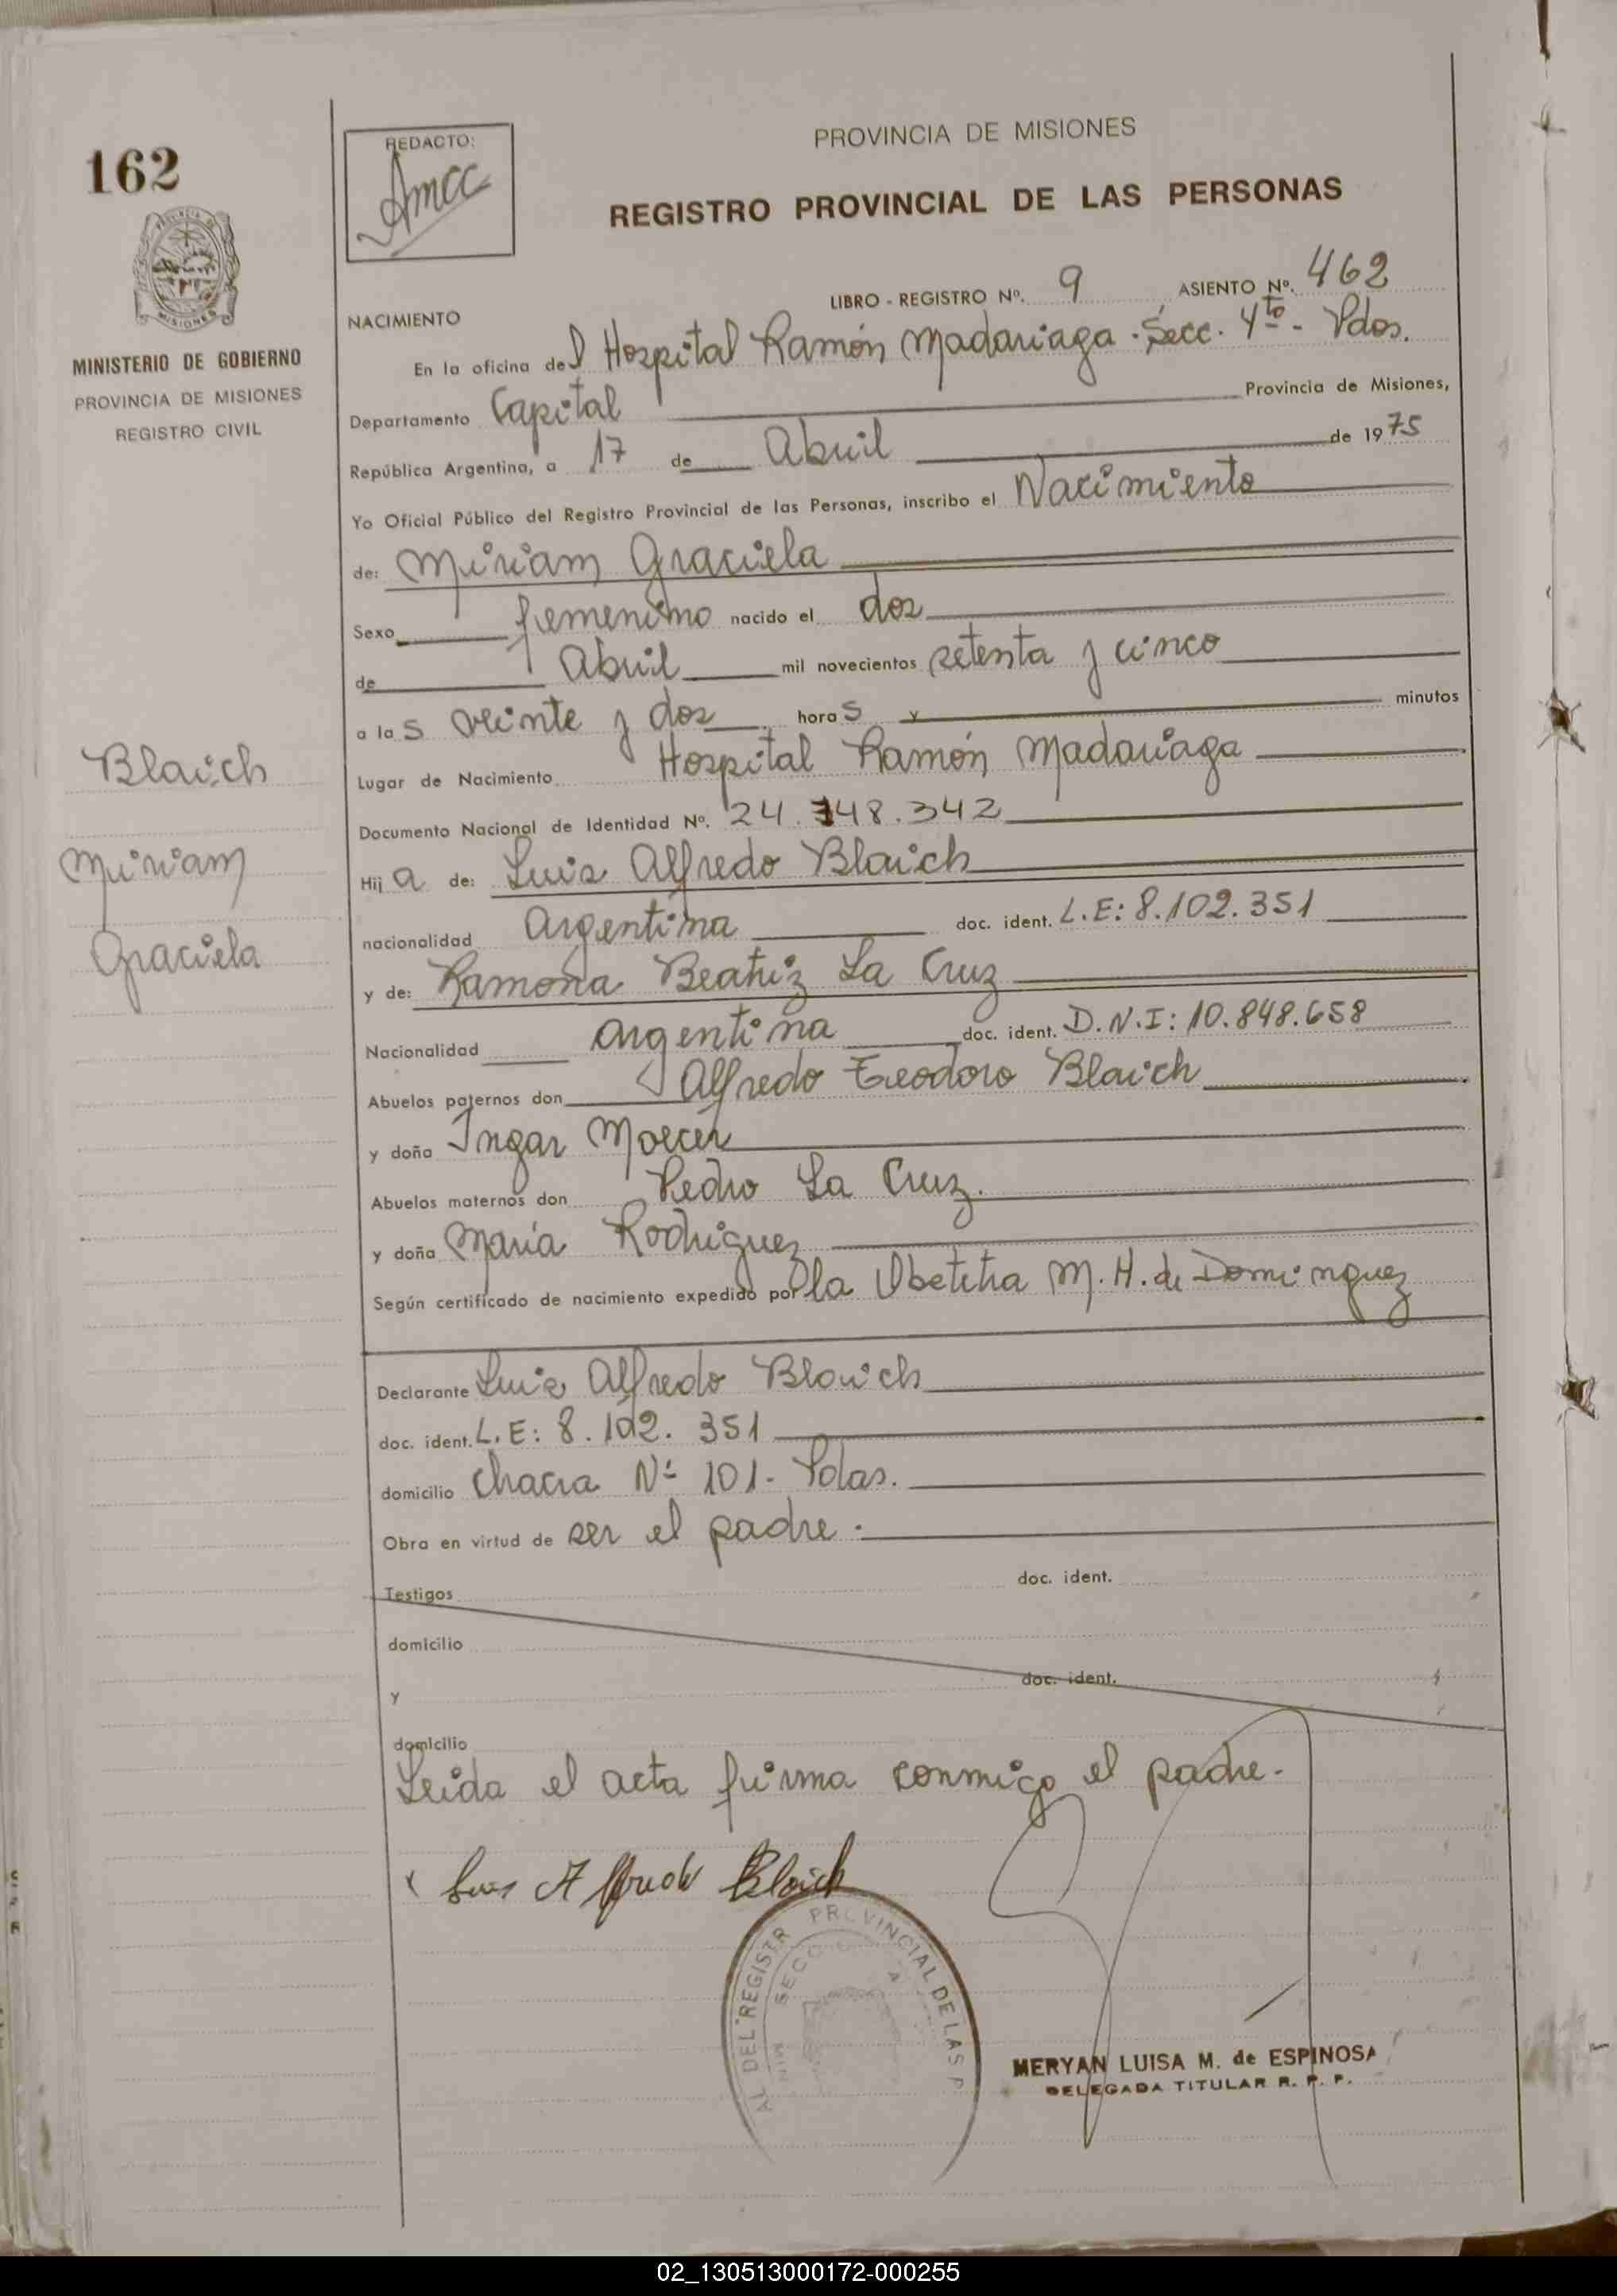 162
MINISTERIO DE GOBIERNO
PROVINCIA DE MISIONES
REGISTRO CIVIL
Blaich
Miriam
Graciela
REDACTO:
Amcc
PROVINCIA DE MISIONES
REGISTRO PROVINCIAL DE LAS PERSONAS
LIBRO - REGISTRO Nº. 9 ASIENTO Nº. 462
NACIMIENTO
En la oficina del Hospital Ramón Madariaga - Secc. 4to - Pdas.
Departamento Capital Provincia de Misiones,
República Argentina, a 17 de Abril de 1975
Yo Oficial Público del Registro Provincial de las Personas, inscribo el Nacimiento
de: Miriam Graciela
Sexo femenino nacido el dos
de Abril mil novecientos setenta y cinco
a las veinte y dos horas y minutos
Lugar de Nacimiento Hospital Ramón Madariaga
Documento Nacional de Identidad Nº. 24.348.342
Hija de: Luis Alfredo Blaich
nacionalidad Argentina doc. ident. L.E: 8.102.351
y de: Ramona Beatriz La Cruz
Nacionalidad Argentina doc. ident. D.N.I: 10.848.658
Abuelos paternos don Alfredo Teodoro Blaich
y doña Ingar Moecer
Abuelos maternos don Pedro La Cruz.
y doña María Rodriguez
Según certificado de nacimiento expedido por la Obstetra M. H. de Dominguez
Declarante Luis Alfredo Blaich
doc. ident. L.E: 8.102.351
domicilio Chacra Nº 101 - Pdas.
Obra en virtud de ser el padre.
Testigos doc. ident.
domicilio
y doc. ident.
domicilio
Leída el acta firma conmigo el padre.
x Luis Alfredo Blaich
AL DEL REGISTR PROVINCIAL DE LAS P
SECC
MERYAN LUISA M. de ESPINOSA
DELEGADA TITULAR R. P. P.
02_130513000172-000255